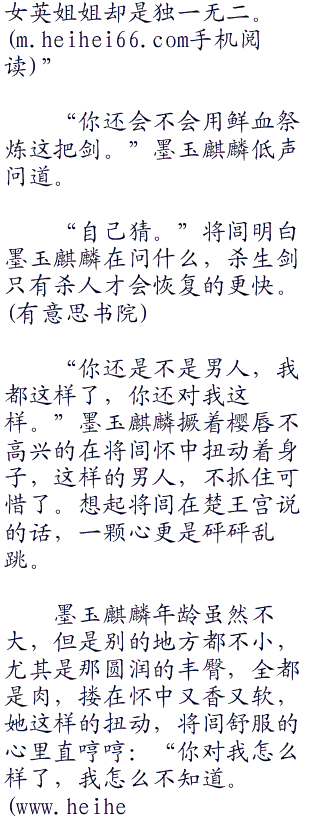 女英姐姐却是独一无二。
(m.heihei66.com手机阅
读)”
“你还会不会用鲜血祭
炼这把剑。”墨玉麒麟低声
问道。
“自己猜。”将闾明白
墨玉麒麟在问什么，杀生剑
只有杀人才会恢复的更快。
(有意思书院)
“你还是不是男人，我
都这样了，你还对我这
样。”墨玉麒麟撅着樱唇不
高兴的在将闾怀中扭动着身
子，这样的男人，不抓住可
惜了。想起将闾在楚王宫说
的话，一颗心更是砰砰乱
跳。
墨玉麒麟年龄虽然不
大，但是别的地方都不小，
尤其是那圆润的丰臀，全都
是肉，搂在怀中又香又软，
她这样的扭动，将闾舒服的
心里直哼哼：“你对我怎么
样了，我怎么不知道。
(www.heihe